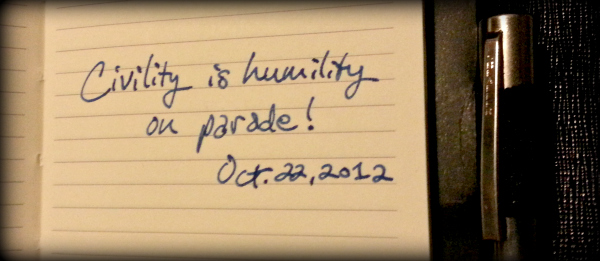 Civility is humility
on parade!
Oct. 22, 2012